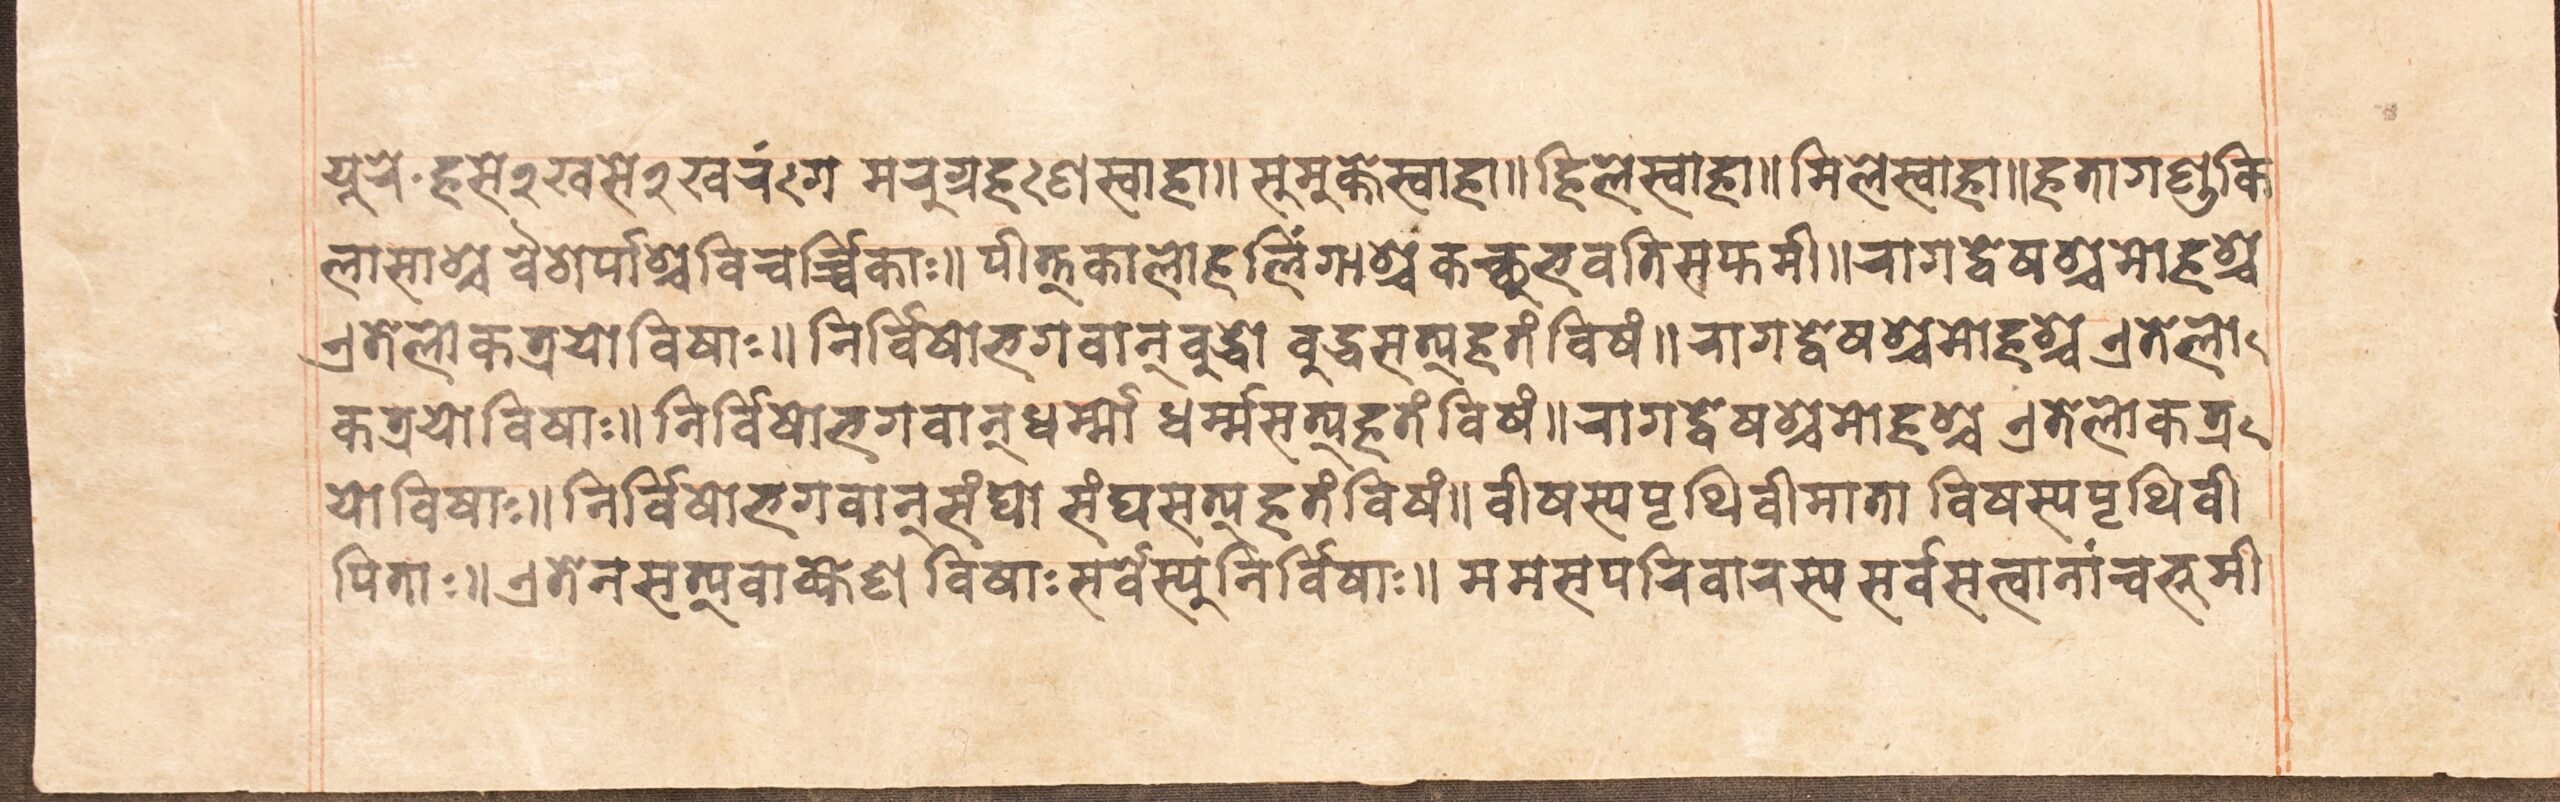 यूरे॰हसे२खसे२खरंग मरुग्रहणस्वाहा॥ सुमुक्तेस्वाहा॥ हिलेस्वाहा॥ मिलेस्वाहा॥ हतागण्डकि
लासाश्चे वैठोर्पाश्चेविचर्च्चिकाः॥ पीत्तकालोहलिंगाश्चे कच्छूभवतिसफमी॥ रागद्वेषश्चेमोहश्चे
एतेलोकत्रयोविषाः॥ निर्विषोभगवान्बुद्धो बुद्धसत्यहतंविषं॥ रागद्वेषश्चेमोहश्चे एतेलो
कत्रयोविषाः॥ निर्विषोभगवान्धर्म्मो धर्म्मसत्यहतंविषं॥ रागद्वेषश्चेमोहश्चे एतेलोकत्र
योविषाः॥ निर्विषोभगवान्संघो संघसत्यहतंविषं॥ वीषस्यपृथिवीमाता विषस्यपृथिवी
पिताः॥ एतेनसत्यवाक्येण विषाःसर्वेस्युनिर्विषाः॥ ममसपरिवारस्य सर्वसत्वानांचभुमी